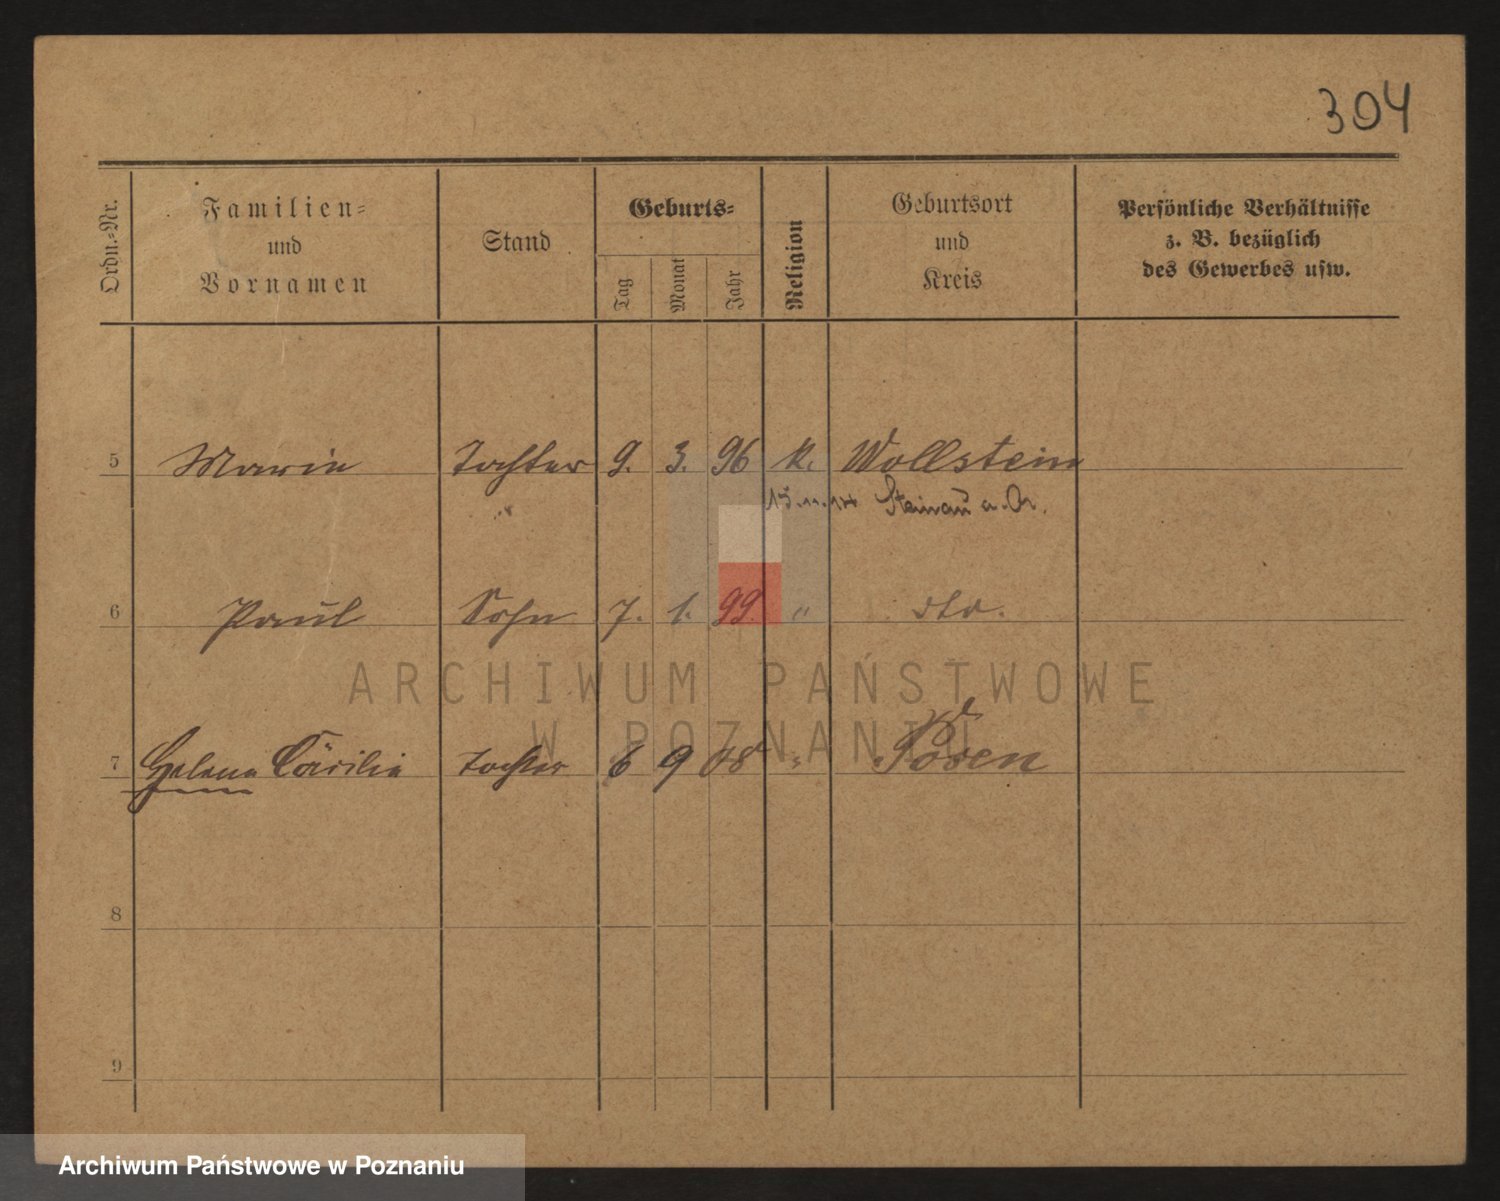 304
Ordn.-Nr.
Familien-
und
Vornamen
Stand
Geburts-
Tag
Monat
Jahr
Religion
Geburtsort
und
Kreis
Persönliche Verhältnisse
z. B. bezüglich
des Gewerbes usw.
5 Marie Tochter 9. 3. 96 k. Wollstein
15.11.14 Steinau a. Or.
6 Paul Sohn 7. 1. 99. " dto.
7 Helene Cäcilie Tochter 6 9 08 " Posen
8
9
ARCHIWUM PAŃSTWOWE
W POZNANIU
Archiwum Państwowe w Poznaniu